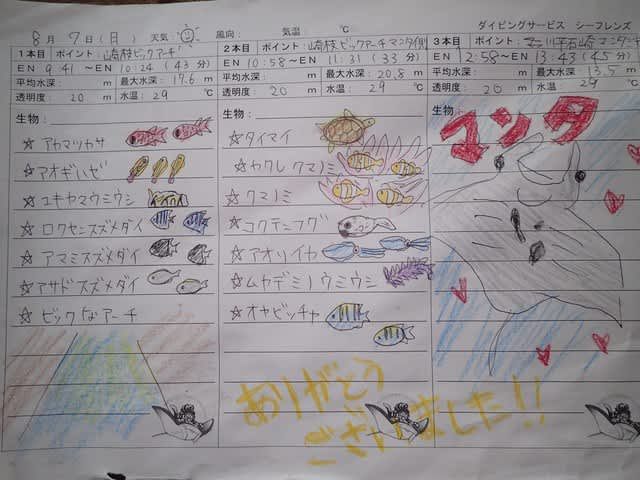 ダイビングサービス シーフレンズ
8月 7日(日) 天気 風向: 気温 ℃
1本目 ポイント: 崎枝ビッグアーチ
EN 9:41 ～EN 10:24 (43分)
平均水深: m 最大水深: 17.6 m
透明度: 20 m 水温: 29 ℃
生物:
☆ アカマツカサ
☆ アオギハゼ
☆ ユキヤマウミウシ
☆ ロクセンスズメダイ
☆ アマミスズメダイ
☆ アサドスズメダイ
☆ ビックなアーチ
2本目 ポイント: 崎枝ビッグアーチマンタ側
EN 10:58 ～EN 11:31 (33分)
平均水深: m 最大水深: 20.8 m
透明度: 20 m 水温: 29 ℃
生物:
☆ タイマイ
☆ ヤクシマクマノミ
☆ クマノミ
☆ コクテンフグ
☆ アオリイカ
☆ ムカデミノウミウシ
☆ オヤビッチャ
3本目 ポイント: 川平石崎マンタ
EN 12:58 ～EN 13:43 (45分)
平均水深: m 最大水深: 13.5 m
透明度: 20 m 水温: 29 ℃
生物:
マンタ
ありがとう
ございました!!